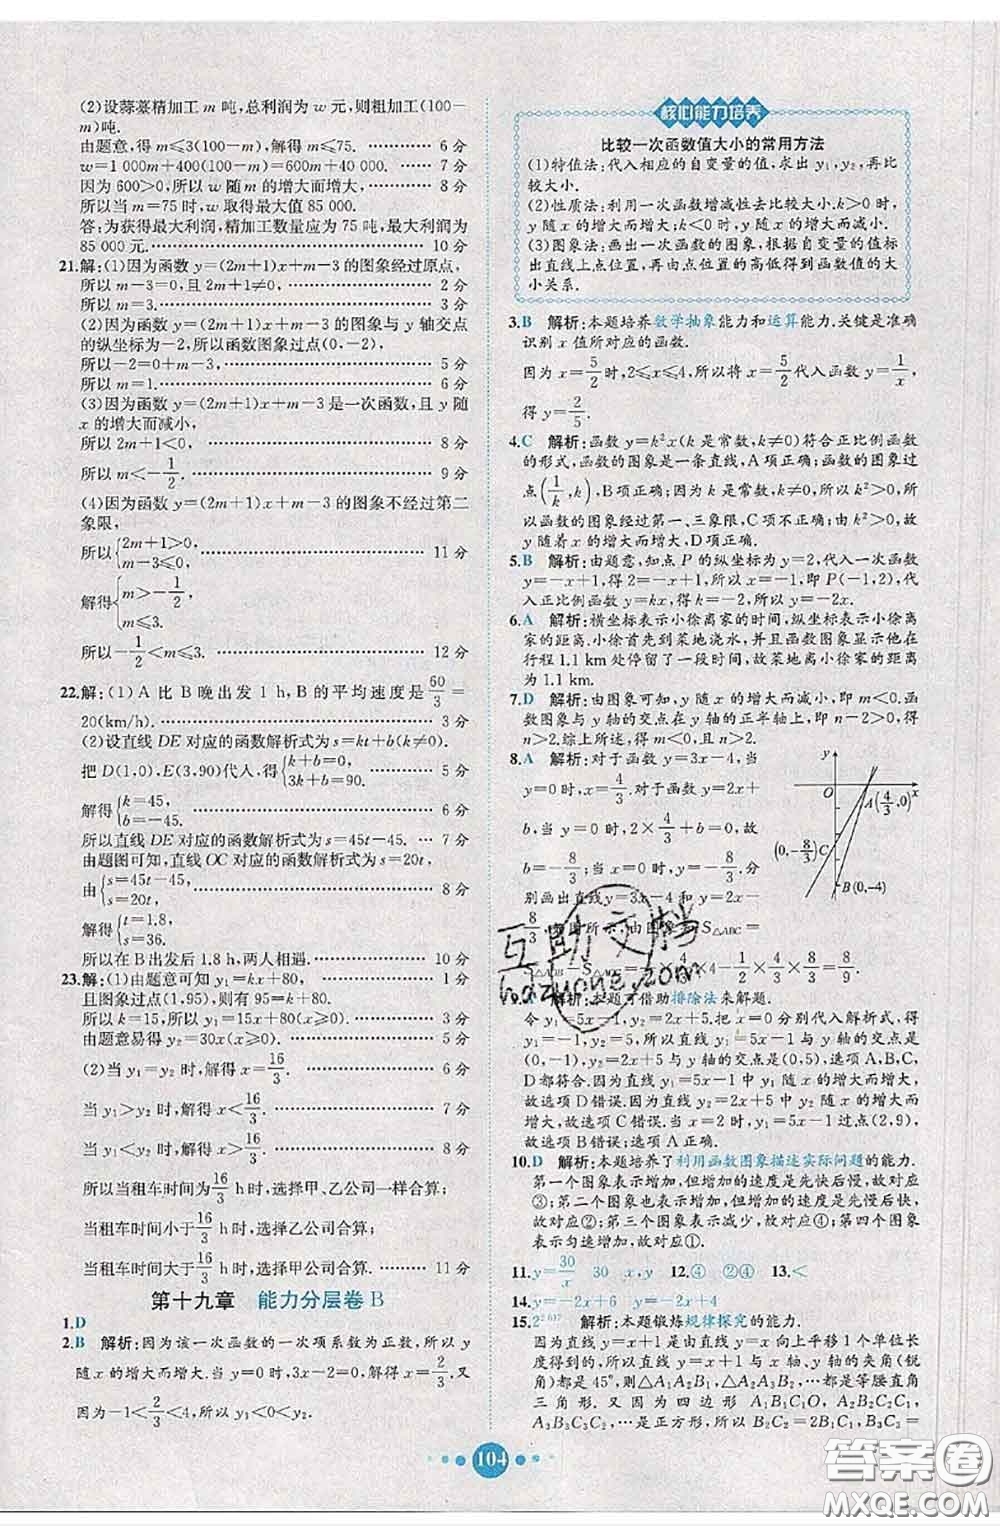 (2)设蒜薹精加工 m 吨,总利润为 w 元,则粗加工(100-
m)吨.
由题意,得 m≤3(100-m),解得 m≤75. ………… 6 分
w=1000m+400(100-m)=600m+40 000. …… 7 分
因为 600>0,所以 w 随 m 的增大而增大, ………… 8 分
所以当 m=75 时,w 取得最大值 85 000.
答:为获得最大利润,精加工数量应为 75 吨,最大利润为
85 000 元. ………… 10 分
21.解:(1)因为函数 y=(2m+1)x+m-3 的图象经过原点,
所以 m-3=0,且 2m+1≠0, ………… 2 分
所以 m=3. ………… 3 分
(2)因为函数 y=(2m+1)x+m-3 的图象与 y 轴交点
的纵坐标为-2,所以函数图象过点(0,-2),
所以-2=0+m-3, ………… 5 分
所以 m=1. ………… 6 分
(3)因为函数 y=(2m+1)x+m-3 是一次函数,且 y 随
x 的增大而减小,
所以 2m+1<0, ………… 8 分
所以 m<-1/2. ………… 9 分
(4)因为函数 y=(2m+1)x+m-3 的图象不经过第二
象限,
所以{2m+1>0, m-3≤0, ………… 11 分
解得{m>-1/2, m≤3.
所以-1/2<m≤3. ………… 12 分
22.解:(1)A 比 B 晚出发 1 h,B 的平均速度是60/3=
20(km/h). ………… 3 分
(2)设直线 DE 对应的函数解析式为 s=kt+b(k≠0).
把 D(1,0),E(3,90)代人,得{k+b=0, 3k+b=90. ………… 5 分
解得{k=45, b=-45. ………… 6 分
所以直线 DE 对应的函数解析式为 s=45t-45. … 7 分
由题图可知,直线 OC 对应的函数解析式为 s=20t,
由{s=45t-45, s=20t, ………… 8 分
解得{t=1.8, s=36.
所以在 B 出发后 1.8 h,两人相遇. ………… 10 分
23.解:(1)由题意可知 y₁=kx+80, ………… 1 分
且图象过点(1,95),则有 95=k+80.
所以 k=15,所以 y₁=15x+80(x≥0). ………… 3 分
由题意易得 y₂=30x(x≥0). ………… 4 分
(2)当 y₁=y₂ 时,解得 x=16/3. ………… 6 分
当 y₁>y₂ 时,解得 x<16/3. ………… 7 分
当 y₁<y₂ 时,解得 x>16/3. ………… 8 分
所以当租车时间为16/3 h 时,选择甲、乙公司一样合算;
当租车时间小于16/3 h 时,选择乙公司合算;
当租车时间大于16/3 h 时,选择甲公司合算. ……… 11 分
第十九章 能力分层卷 B
1.D
2.B 解析:因为该一次函数的一次项系数为正数,所以 y
随 x 的增大而增大.当 y=0 时,3x-2=0,解得 x=2/3,又
因为-1<2/3<4,所以 y₁<0<y₂.
核心能力培养
比较一次函数值大小的常用方法
(1)特值法:代入相应的自变量的值,求出 y₁,y₂,再比
较大小.
(2)性质法:利用一次函数增减性去比较大小.k>0 时,
y 随 x 的增大而增大;k<0 时,y 随 x 的增大而减小.
(3)图象法:画出一次函数的图象,根据自变量的值标
出直线上点位置,再由点位置的高低得到函数值的大
小关系.
3.B 解析:本题培养数学抽象能力和运算能力.关键是准确
识别 x 值所对应的函数.
因为 x=5/2时,2≤x≤4,所以将 x=5/2代入函数 y=1/x,
得 y=2/5.
4.C 解析:函数 y=k²x(k 是常数,k≠0)符合正比例函数
的形式,函数的图象是一条直线,A 项正确;函数图象过
点(1/k,k),B 项正确;因为 k 是常数,k≠0,所以 k²>0,所
以函数的图象经过第一、三象限,C 项不正确;由 k²>0,
故 y 随着 x 的增大而增大,D 项正确.
5.B 解析:由题意,知点 P 的纵坐标为 y=2,代入一次函数
y=-x+1,得 2=-x+1,所以 x=-1,即 P(-1,2),代
入正比例函数 y=kx,得 k=-2,所以 y=-2x.
6.A 解析:横坐标表示小徐离家的时间,纵坐标表示小徐离
家的距离.小徐首先到菜地浇水,并且函数图象显示他在
行程 1.1 km 处停留了一段时间,故菜地离小徐家的距离
为 1.1 km.
7.D 解析:由图象可知,y 随 x 的增大而减小,即 m<0.函
数图象与 y 轴的交点在 y 轴的正半轴上,即 n-2>0,得
n>2.综上所述,得 m<0,且 n>2.
8.A 解析:对于函数 y=3x-4,当
y=0 时,x=4/3.对于函数 y=2x+
b,当 y=0 时,2×4/3+b=0,故
b=-8/3;当 x=0 时,y=-8/3.分
别画出直线 y=3x-4 和 y=2x
-8/3 如图所示,由图象知 S△ABC=
S△AOB-S△AOC=1/2×4/3×4-1/2×4/3×8/3=8/9.
y
O
x
A(4/3,0)
(0,-8/3)C
B(0,-4)
解析:本题可借助排除法来解题.
令 y₁=5x-1,y₂=2x+5.把 x=0 分别代入解析式,得
y₁=-1,y₂=5,所以直线 y₁=5x-1 与 y 轴的交点是
(0,-1),y₂=2x+5 与 y 轴的交点是(0,5),选项 A、B、C、
D 都符合.因为直线 y₁=5x-1 中 y 随 x 的增大而增大,
故选项 D 错误.因为直线 y₂=2x+5 中 y 随 x 的增大而
增大,故选项 C 错误.当 x=2 时,y₁=y₂=9,过点(2,9),
故选项 B 错误;选项 A 正确.
10.D 解析:本题培养了利用函数图象描述实际问题的能力.
第一个图象表示增加,但增加的速度是先快后慢,故对应
③;第二个图象也表示增加,但增加的速度是先慢后快,
故对应②;第三个图象表示减少,故对应④;第四个图象
表示匀速增加,故对应①.
11.y=30/x 30 x,y 12.④ ②④ 13.<
14.y=-2x+6 y=-2x+4
15.2²⁰¹⁷ 解析:本题锻炼规律探究的能力.
因为直线 y=x+1 是由直线 y=x 向上平移 1 个单位长
度得到的,所以直线 y=x+1 与 x 轴、y 轴的夹角(锐
角)都是 45°,则△A₁A₂B₁、△A₂A₃B₂、…都是等腰直角三
角形.又因为四边形 A₁B₁C₁O,A₂B₂C₂C₁,
A₃B₃C₃C₂,…是正方形,所以 B₂C₂=2B₁C₁,B₃C₃=
104
互助文档
hdzuoye.com
答案圈
MXQE.COM